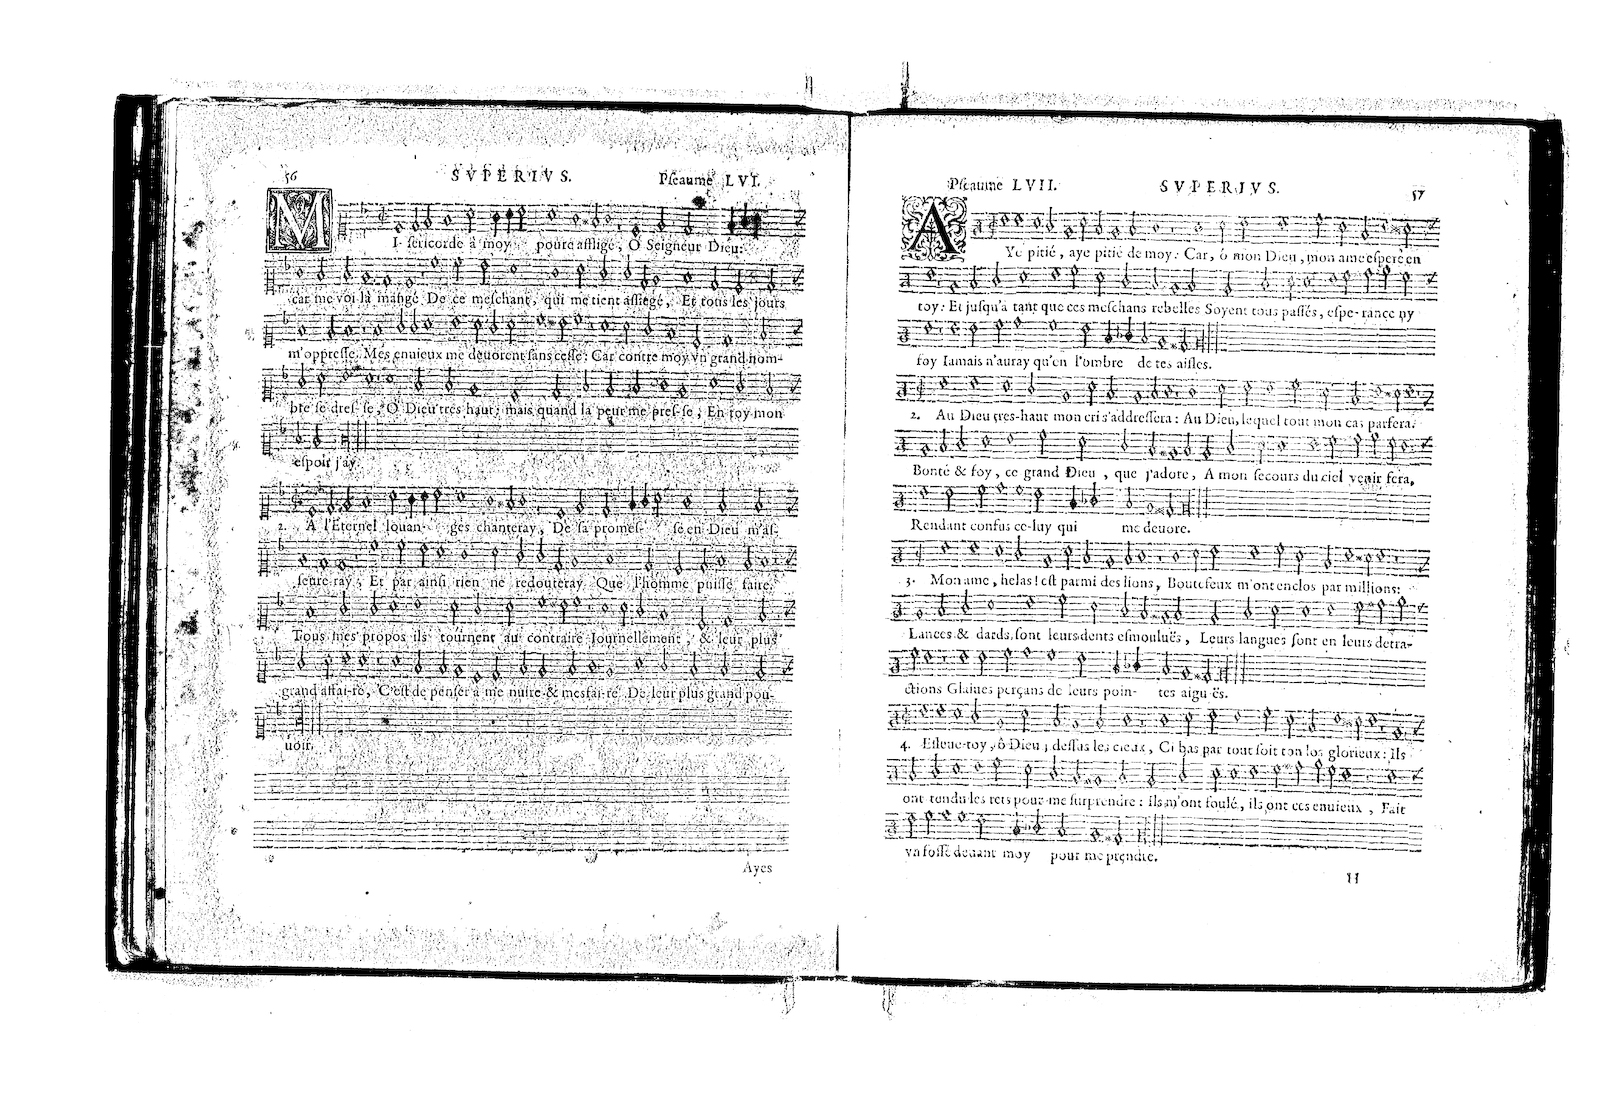 56 SVPERIVS. Pſeaume LVI.
MI- ſericorde à moy poure affligé, O Seigneur Dieu:
car me voi là mangé De ce meſchant, qui me tient aſſiegé, Et tous les jours
m'oppreſſe. Mes enuieux me deuorent ſans ceſſe: Car contre moy vn grand nom-
bre ſe dreſ- ſe, O Dieu tres haut; mais quand la peur me preſ- ſe, En toy mon
eſpoir j'ay.
2. A l'Eternel louan- ges chanteray, De ſa promeſ- ſe en Dieu m'aſ-
ſeure ray; Et par ainſi rien ne redouteray Que l'homme puiſſe faire.
Tous mes propos ils tournent au contraire Journellement, & leur plus
grand affai-re, C'eſt de penſer à me nuire & mesfai-re De leur plus grand pou-
uoir.
Ayes
Pſeaume LVII. SVPERIVS. 57
AYe pitié, aye pitié de moy: Car, ô mon Dieu, mon ame eſpere en
toy: Et juſqu'à tant que ces meſchans rebelles Soyent tous paſſés, eſpe-rance ny
foy Iamais n'auray qu'en l'ombre de tes aiſles.
2. Au Dieu tres-haut mon cri s'addreſſera: Au Dieu, lequel tout mon cas parfera.
Bonté & foy, ce grand Dieu, que j'adore, A mon ſecours du ciel venir fera,
Rendant confus ce-luy qui me deuore.
3. Mon ame, helas! eſt parmi des lions, Boutefeux m'ont enclos par millions:
Lances & dards ſont leurs dents eſmouluës, Leurs langues ſont en leurs detra-
ctions Glaiues perçans de leurs poin- tes aigu-ës.
4. Eſleue-toy, ô Dieu, deſſus les cieux, Ci bas par tout ſoit ton los glorieux: ils
ont tendu les rets pour me ſurprendre: ils m'ont foulé, ils ont ces enuieux, Fait
vn foſſé deuant moy pour me prendre.
H